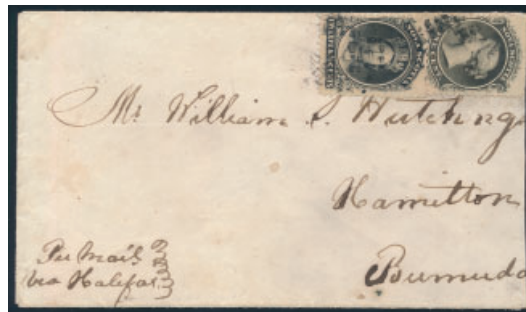 Mr William S. Hutchngs
Hamilton
Bermuda
Per Mail
via Halifax